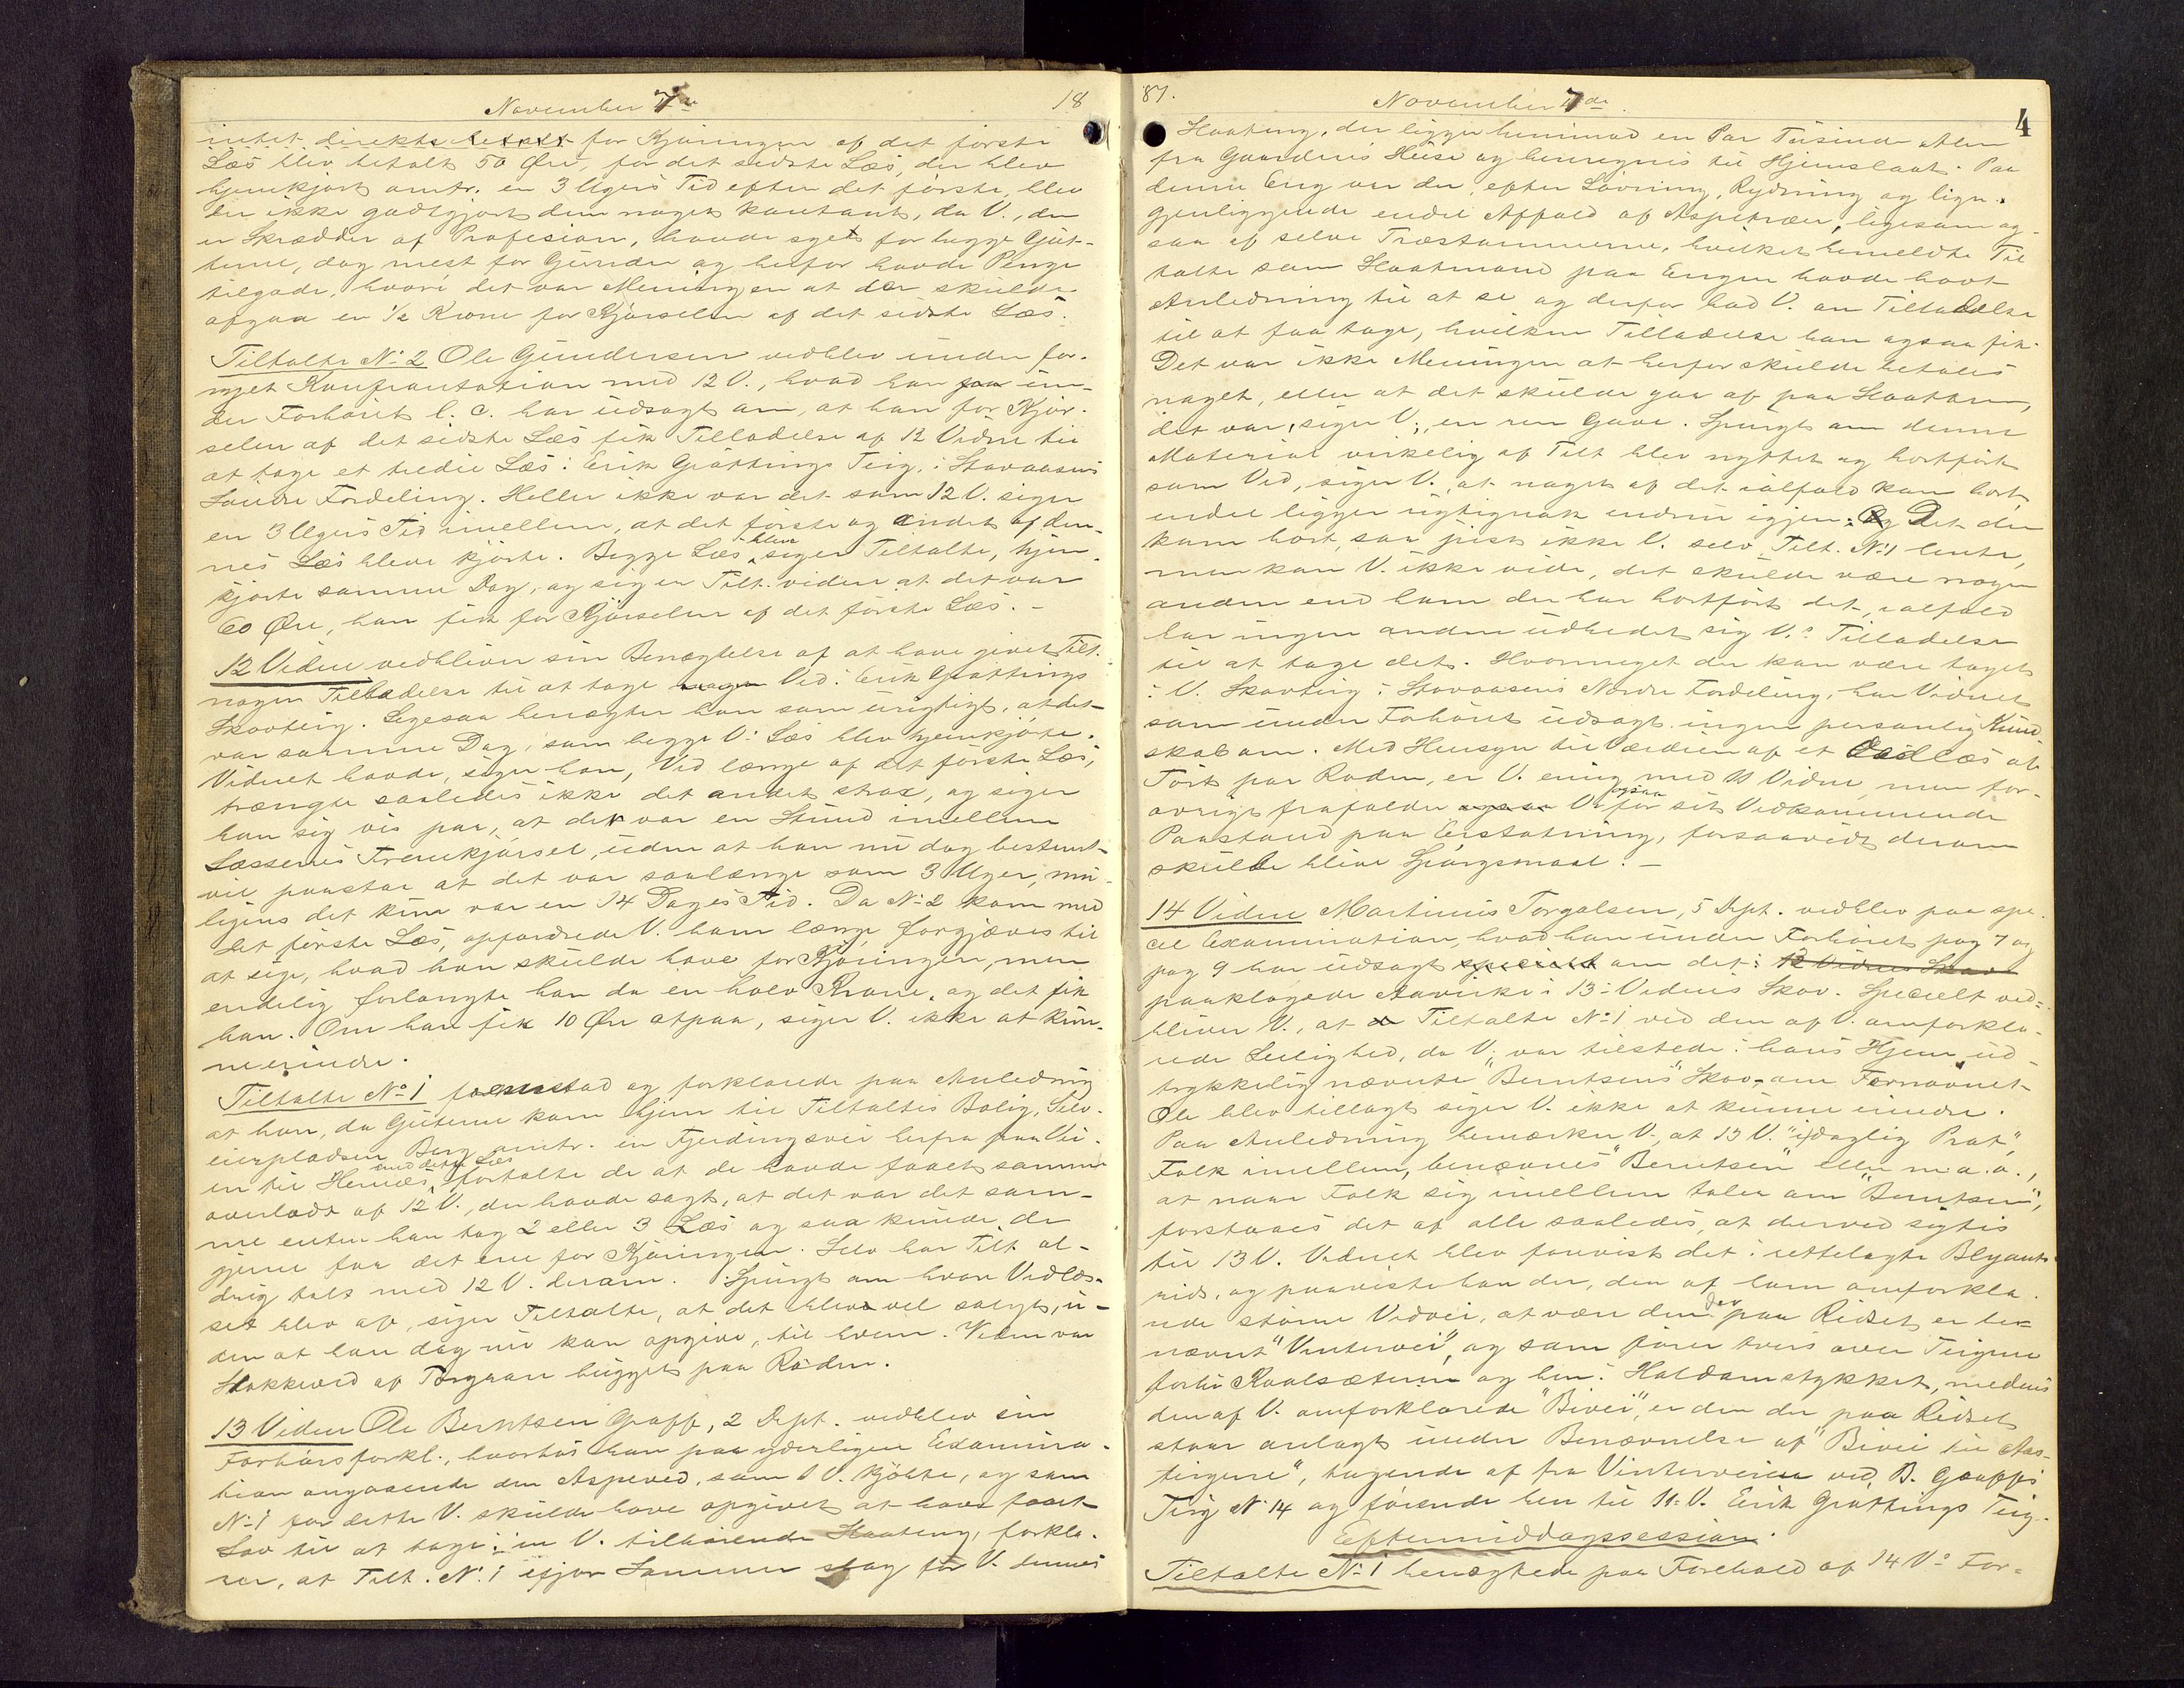 November 7de 18
intet direkte betalt for Kjøringen af det første
Læs blev betalt 50 Øre, for det sidste Læs, der blev
hjemkjørt omtr. en 3 Ugers Tid efter det første, blev
der ikke godtgjort dem noget kontant, da V., der
er Skrædder af Profesion, havde syet for begge Gut-
terne, dog mest for Gunder og herfor havde Penge
tilgode, hvori det var Meningen at der skulde
afgaa en ½ Krone for Kjørselen af det sidste Læs.
Tiltalte No 2 Ole Gundersen vedblev under for-
nyet Konfrontation med 12 V., hvad han un-
der Forhøret l. c. har udsagt om, at han for Kjør-
selen af det sidste Læs fik Tilladelse af 12 Vidne til
at tage et tredie Læs i Erik Grøttings Teig i Stavaasens
Søndre Fordeling. Heller ikke var det som 12 V. siger
en 3 Ugers Tid imellem, at det første og andet af den-
nes Læs bleve kjørte. Begge Læs bleve siger Tiltalte, hjem-
kjørte samme Dag, og siger Tilt. videre at det var
60 Øre, han fik for Kjørselen af det første Læs. –
12 Vidne vedbliver sin Benægtelse af at have givet Tilt.
nogen Tilladelse til at tage Ved i Erik Grøttings
Skovteig. Ligesaa benægter han som urigtigt, at det
var samme Dag, som begge V: Læs blev hjemkjørte.
Vidnet havde, siger han, Ved længe af det første Læs,
trængte saaledes ikke det andet strax, og siger
han sig vis paa, at det var en Stund imellem
Læssenes Fremkjørsel, uden at han nu dog bestemt
vil paastaa at det var saalænge som 3 Uger, mu-
ligens det kun var en 14 Dages Tid. Da No 2 kom med
det første Læs, opfordrede V. ham længe forgjæves til
at sige, hvad han skulde have for Kjøringen, men
endelig forlangte han da en halv Krone, og det fik
han. Om han fik 10 Øre atpaa, siger V. ikke at kun-
ne erindre.
Tiltalte No 1 fremstod og forklarede paa Anledning
at han, da Gutterne kom hjem til Tiltaltes Bolig, Selv-
eierpladsen Berg omtr. en Fjerdingsvei herfra paa Vei-
en til Hernæs, med dette Læs fortalte de at de havde faaet samme
overladt af 12 V., der havde sagt, at det var det sam-
me enten han tog 2 eller 3 Læs og saa kunde de
gjerne faa det ene for Kjøringen. Selv har Tilt. al-
drig talt med 12 V. derom. Spurgt om hvor Vedlæs-
set blev af, siger Tiltalte, at det blev vel solgt, u-
den at han dog nu kan opgive, til hvem. Veden var
Stokkeved af Torgran hugget paa Roden.
13 Vidne Ole Berntsen Graff, 2 Dept. vedblev sin
Forhørsforkl., hvorhos han paa yderligere Examina-
tion angaaende den Aspeved, som 1 V. kjøbte, og som
No 1 for dette V. skulde have opgivet at have faaet
Lov til at tage i en V. tilhørende Slaateng, forkla-
rer, at Tilt. No 1 ifjor Sommer slog for V. dennes
87. November 7de 4
Slaateng, der ligger henimod en Par Tusinde Alen
fra Gaardens Huse og henregnes til Hjemslaat. Paa
denne Eng var der, efter Løvning, Rydning og lign.
gjenliggende endel Affald af Aspetræer, ligesom og-
saa af selve Træstammerne, hvilket bemeldte Til-
talte som Slaatmand paa Engen havde havt
Anledning til at se og derfor bad V. om Tilladelse
til at faa tage, hvilken Tilladelse han ogsaa fik.
Det var ikke Meningen at herfor skulde betales
noget, eller at det skulde gaa af paa Slaatten,
det var, siger V., en ren Gave. Spurgt om denne
Material virkelig af Tilt blev nyttet og bortført
som Ved, siger V., at noget af det ialfald kom bort,
endel ligger rigtignok endnu igjen. Det der
kom bort, saa just ikke V. selv Tilt. No 1 hente,
men kan V. ikke vide, det skulde være nogen
anden end ham der har bortført det, ialfald
har ingen anden udbedet sig V.s Tilladelse
til at tage det. Hvormeget der kan være taget
i V. Skovteig i Stavaasens Nordre Fordeling, har Vidnet
som under Forhøret udsagt ingen personlig Kund-
skab om. Med Hensyn til Værdien af et Vedlæs af
Tørt paa Roden, er V. enig med 11 Vidne, men for-
øvrigt frafalder V. ogsaa for sit Vedkommende
Paastand paa Erstatning, forsaavidt derom
skulde blive Spørgsmaal. –
14 Vidne Martinus Torgalsen, 5 Dept. vedblev paa spe-
ciel Examination, hvad han under Forhøret pag 7 og
pag 9 har udsagt specielt om det i 12 Vidnes Skov
paaklagede Aavirke i 13: Vidnes Skov. Specielt ved-
bliver V., at Tiltalte No 1 ved den af V. omforkla-
rede Leilighed, da V. var tilstede i hans Hjem ud-
trykkelig nævnte "Berntsens" Skov, om Fornavnet
Ole blev tillagt siger V. ikke at kunne erindre.
Paa Anledning bemærker V., at 13 V. "i daglig Prat",
Folk imellem, benævnes "Berntsen" eller m. a. o.,
at naar Folk sig imellem taler om "Berntsen",
forstaaes det af alle saaledes, at derved sigtes
til 13 V. Vidnet blev forevist det i rettelagte Blyants-
rids, og paaviste han der, den af ham omforkla-
rede større Vedvei, at være den der paa Ridset er be-
nævnt "Vintervei", og som fører tvers over Teigene
forbi Raalsæteren og hen i Haldamstykket, medens
den af V. omforklarede "Bivei", er den der paa Ridset
staar anlagt under Benævnelse af "Bivei til Aas-
teigene", tagende af fra Vinterveien ved B. Graffs
Teig No 14 og førende hen til 11: V. Erik Grøttings Teig.
Eftermiddagssession.
Tiltalte No 1 benægtede paa Forehold af 14 V: For-